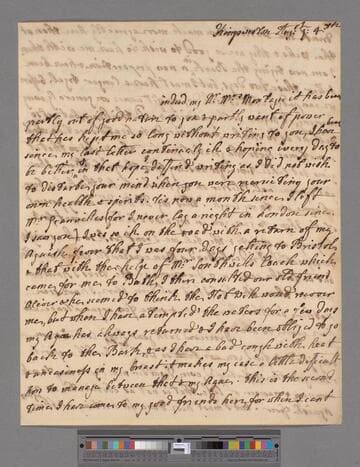 Kingsweston Augst ye 4th
indeed my Dr Mrs Montagu it has been
partly out of good nature to you & partly want of power
that has kept me so long without writing to you, I have been
since my last letter continually ill & hoping every day to
be better in that hope defferd writing as I did not wish
to disturbe your mind when you were recruiting your
own health & spirits. tis now a month since I left
for I never lay a night in London since
I saw you I was sick on the road with a return of my
Ague & fever that I was four days getting to Bristol
& that with the help of Mr Southwells Coach which
came for me to Bath, I then consulted our old friend
Oliver who seemed to think the Hot Wells woud recover
me, but when I have attempted the waters for a few days
my Ague has always returned & I have been obliged to go
back to the Bark, & as I have a bad cough with heat
& uneasiness in my breast it makes my case a little difficult
to manage between that & my Ague. this is the second
time I have come to my good friends here for when I cant